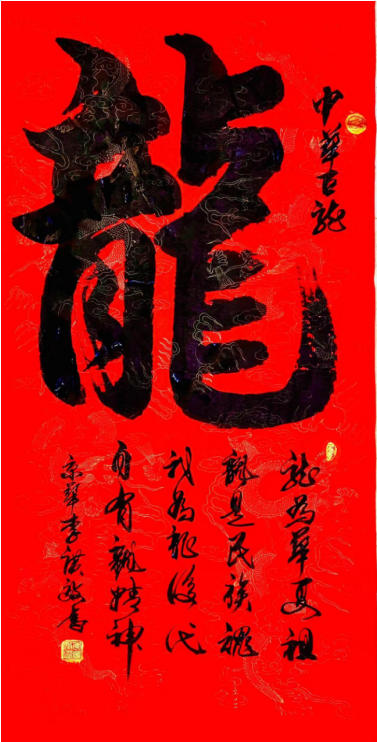 中華巨龙
龍
龙為華夏祖
龍是民族魂
我為龍後代
自有龍精神
京華李書